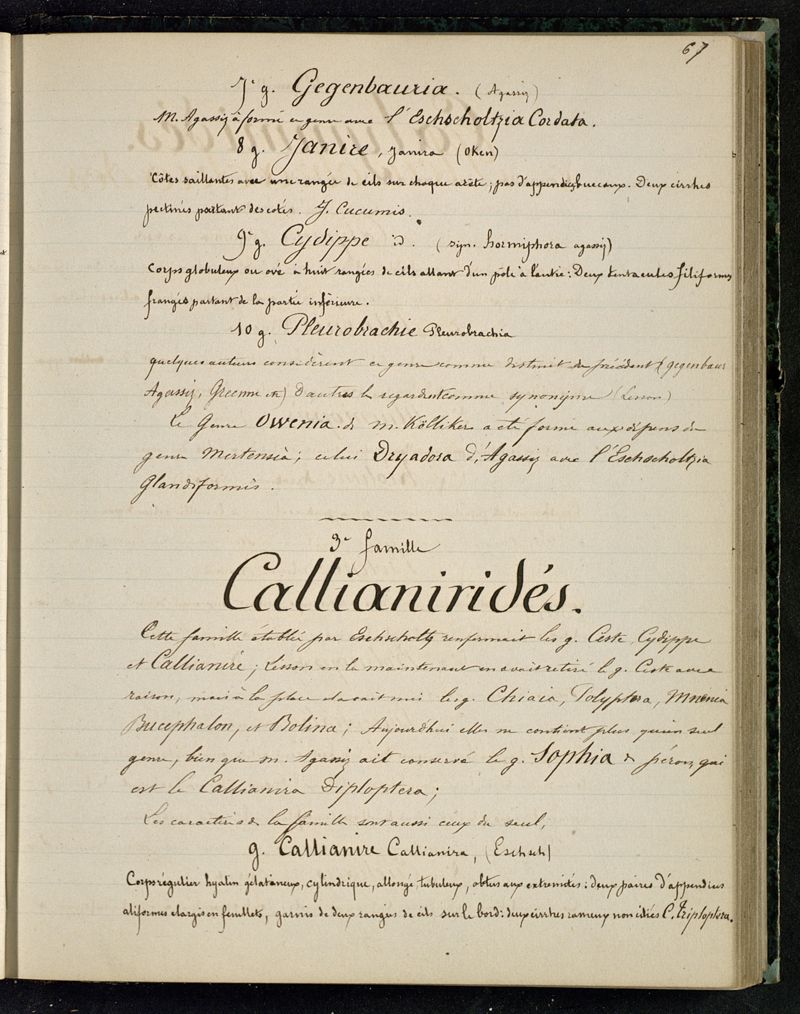 67
7e g. Gegenbauria. (Agassiz)
M. Agassiz à formé ce genre avec l'Eschscholtzia Cordata.
8 g. Janire, Janira (Oken)
Côtes saillantes avec une rangée de cils sur chaque arête; pas d'appendices buccaux. Deux cirrhes
pectinés partant des cotés. J. Cucumis.
9e g. Cydippe id. (syn. hormiphora agassiz)
Corps globuleux ou ové à huit rangées de cils allant d'un pole à l'autre: Deux tentacules filiformes
frangés partant de la partie inférieure.
10 g. Pleurobrachie Pleurobrachia
quelques auteurs considèrent ce genre comme distinct du précédent (gegenbaur
Agassiz, Greenne etc) D'autres le regardent comme synonyme (Lesson)
Le Genre Owenia de M. Kölliker a été formé aux dépens du
genre Mertensia; celui Dryadora d'Agassiz avec l'Eschscholtzia
Glandiformis.
3e famille
Callianiridés.
Cette famille établie par Eschscholtz renfermait les g. Ceste, Cydippe
et Callianire; Lesson en la maintenant en avait retiré le g. Ceste avec
raison, mais à la place avait mis les g. Chiaia, Polyptera, Mnemia
Bucephalon, et Bolina; Aujourdhui elle ne contient plus qu'un seul
genre, bien que M. Agassiz ait conservé le g. Sophia de péron, qui
est le Callianira Diploptera;
Les caractères de la famille sont aussi ceux du seul,
g. Callianire Callianira, (Eschsch)
Corps régulier hyalin gélatineux, cylindrique, allongé tubuleux, obtus aux extremités: deux paires d'appendices
aliformes elargis en feuillets, garnis de deux rangés de cils sur le bord: deux cirrhes rameux non ciliés C. triploptera.